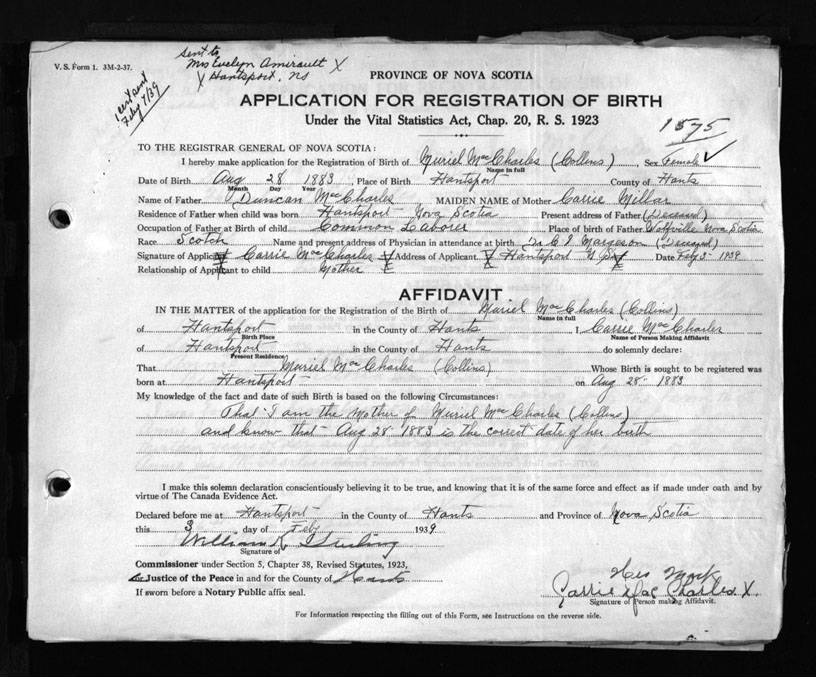 V. S. Form 1. 3M-2-37.
sent to
Mrs Evelyn Amirault X
X Hantsport, NS
1 cert sent
Feby 7/39
PROVINCE OF NOVA SCOTIA
APPLICATION FOR REGISTRATION OF BIRTH
Under the Vital Statistics Act, Chap. 20, R. S. 1923
1575
TO THE REGISTRAR GENERAL OF NOVA SCOTIA:
I hereby make application for the Registration of Birth of Muriel MacCharles (Collins), Sex Female ✓
Name in full
Date of Birth Aug 28 1883, Place of Birth Hantsport County of Hants
Month Day Year
Name of Father Duncan MacCharles MAIDEN NAME of Mother Carrie Millar
Residence of Father when child was born Hantsport Nova Scotia Present address of Father (Deceased)
Occupation of Father at Birth of child Common Laborer Place of birth of Father Wolfville Nova Scotia
Race Scotch Name and present address of Physician in attendance at birth Dr C I Margeson (Deceased)
Signature of Applicant X Carrie MacCharles X Address of Applicant X Hantsport N S X Date Feby 3 1939
Relationship of Applicant to child Mother
AFFIDAVIT
IN THE MATTER of the application for the Registration of the Birth of Muriel MacCharles (Collins)
Name in full
of Hantsport in the County of Hants I, Carrie MacCharles
Birth Place Name of Person Making Affidavit
of Hantsport in the County of Hants do solemnly declare:
Present Residence
That Muriel MacCharles (Collins) Whose Birth is sought to be registered was
born at Hantsport on Aug 28 1883
My knowledge of the fact and date of such Birth is based on the following Circumstances:
That I am the Mother of Muriel MacCharles (Collins)
and know that Aug 28 1883 is the correct date of her birth
I make this solemn declaration conscientiously believing it to be true, and knowing that it is of the same force and effect as if made under oath and by
virtue of The Canada Evidence Act.
Declared before me at Hantsport in the County of Hants and Province of Nova Scotia
this 3 day of Feby 1939
William K Sterling
Signature of
Commissioner under Section 5, Chapter 38, Revised Statutes, 1923,
or Justice of the Peace in and for the County of Hants
If sworn before a Notary Public affix seal.
Her Mark
Carrie X MacCharles X.
Signature of Person making Affidavit.
For Information respecting the filling out of this Form, see Instructions on the reverse side.